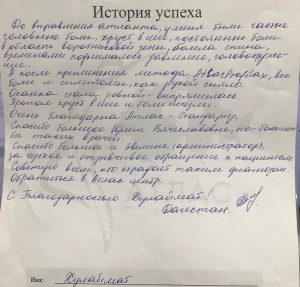 История успеха
До вправления атланта, у меня были частые
головные боли, хруст в шее, постоянные боли
в области воротниковой зоны, болела спина,
временами поднималось давление, головокруже-
ние.
А после применения метода AtlasProfilax, все
боли и симптомы, как рукой сняло.
Осанка стала ровной - выпрямилась.
Пропал хруст в шее и боли исчезли.
Очень благодарна Атлас - Стандарту.
Спасибо большое Юлии Вячеславовне, по-больше
бы таких врачей.
Спасибо большое и Эвелине (администратор),
за чуткое и отзывчивое обращение к пациентам.
Советую всем, кто страдает таким диагнозом.
Обратиться в Атлас центр.
С Благодарностью Сулаймат!
Дагестан.
Имя: Сулаймат